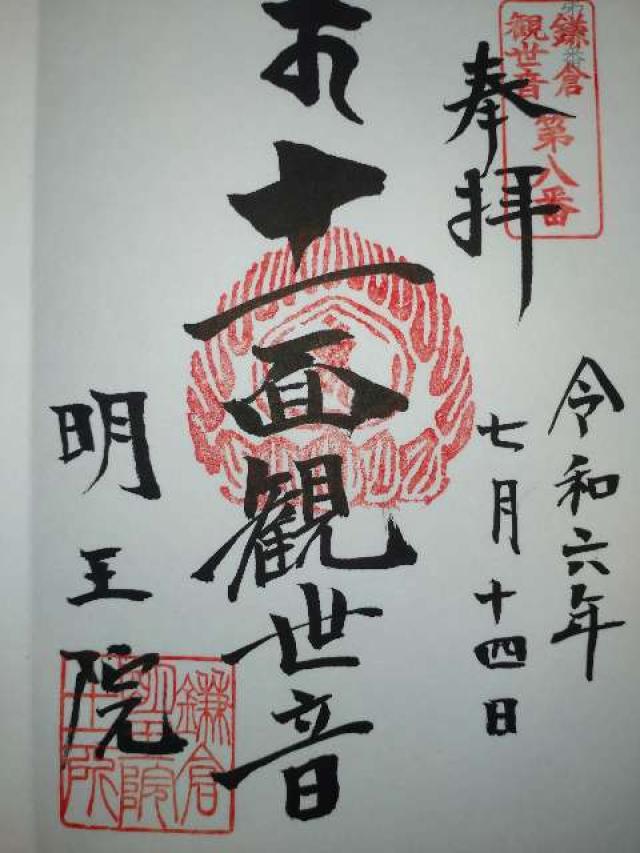 鎌倉
観世音
第八番
奉拝
令和六年
七月十四日
十一面観世音
明王院
鎌倉